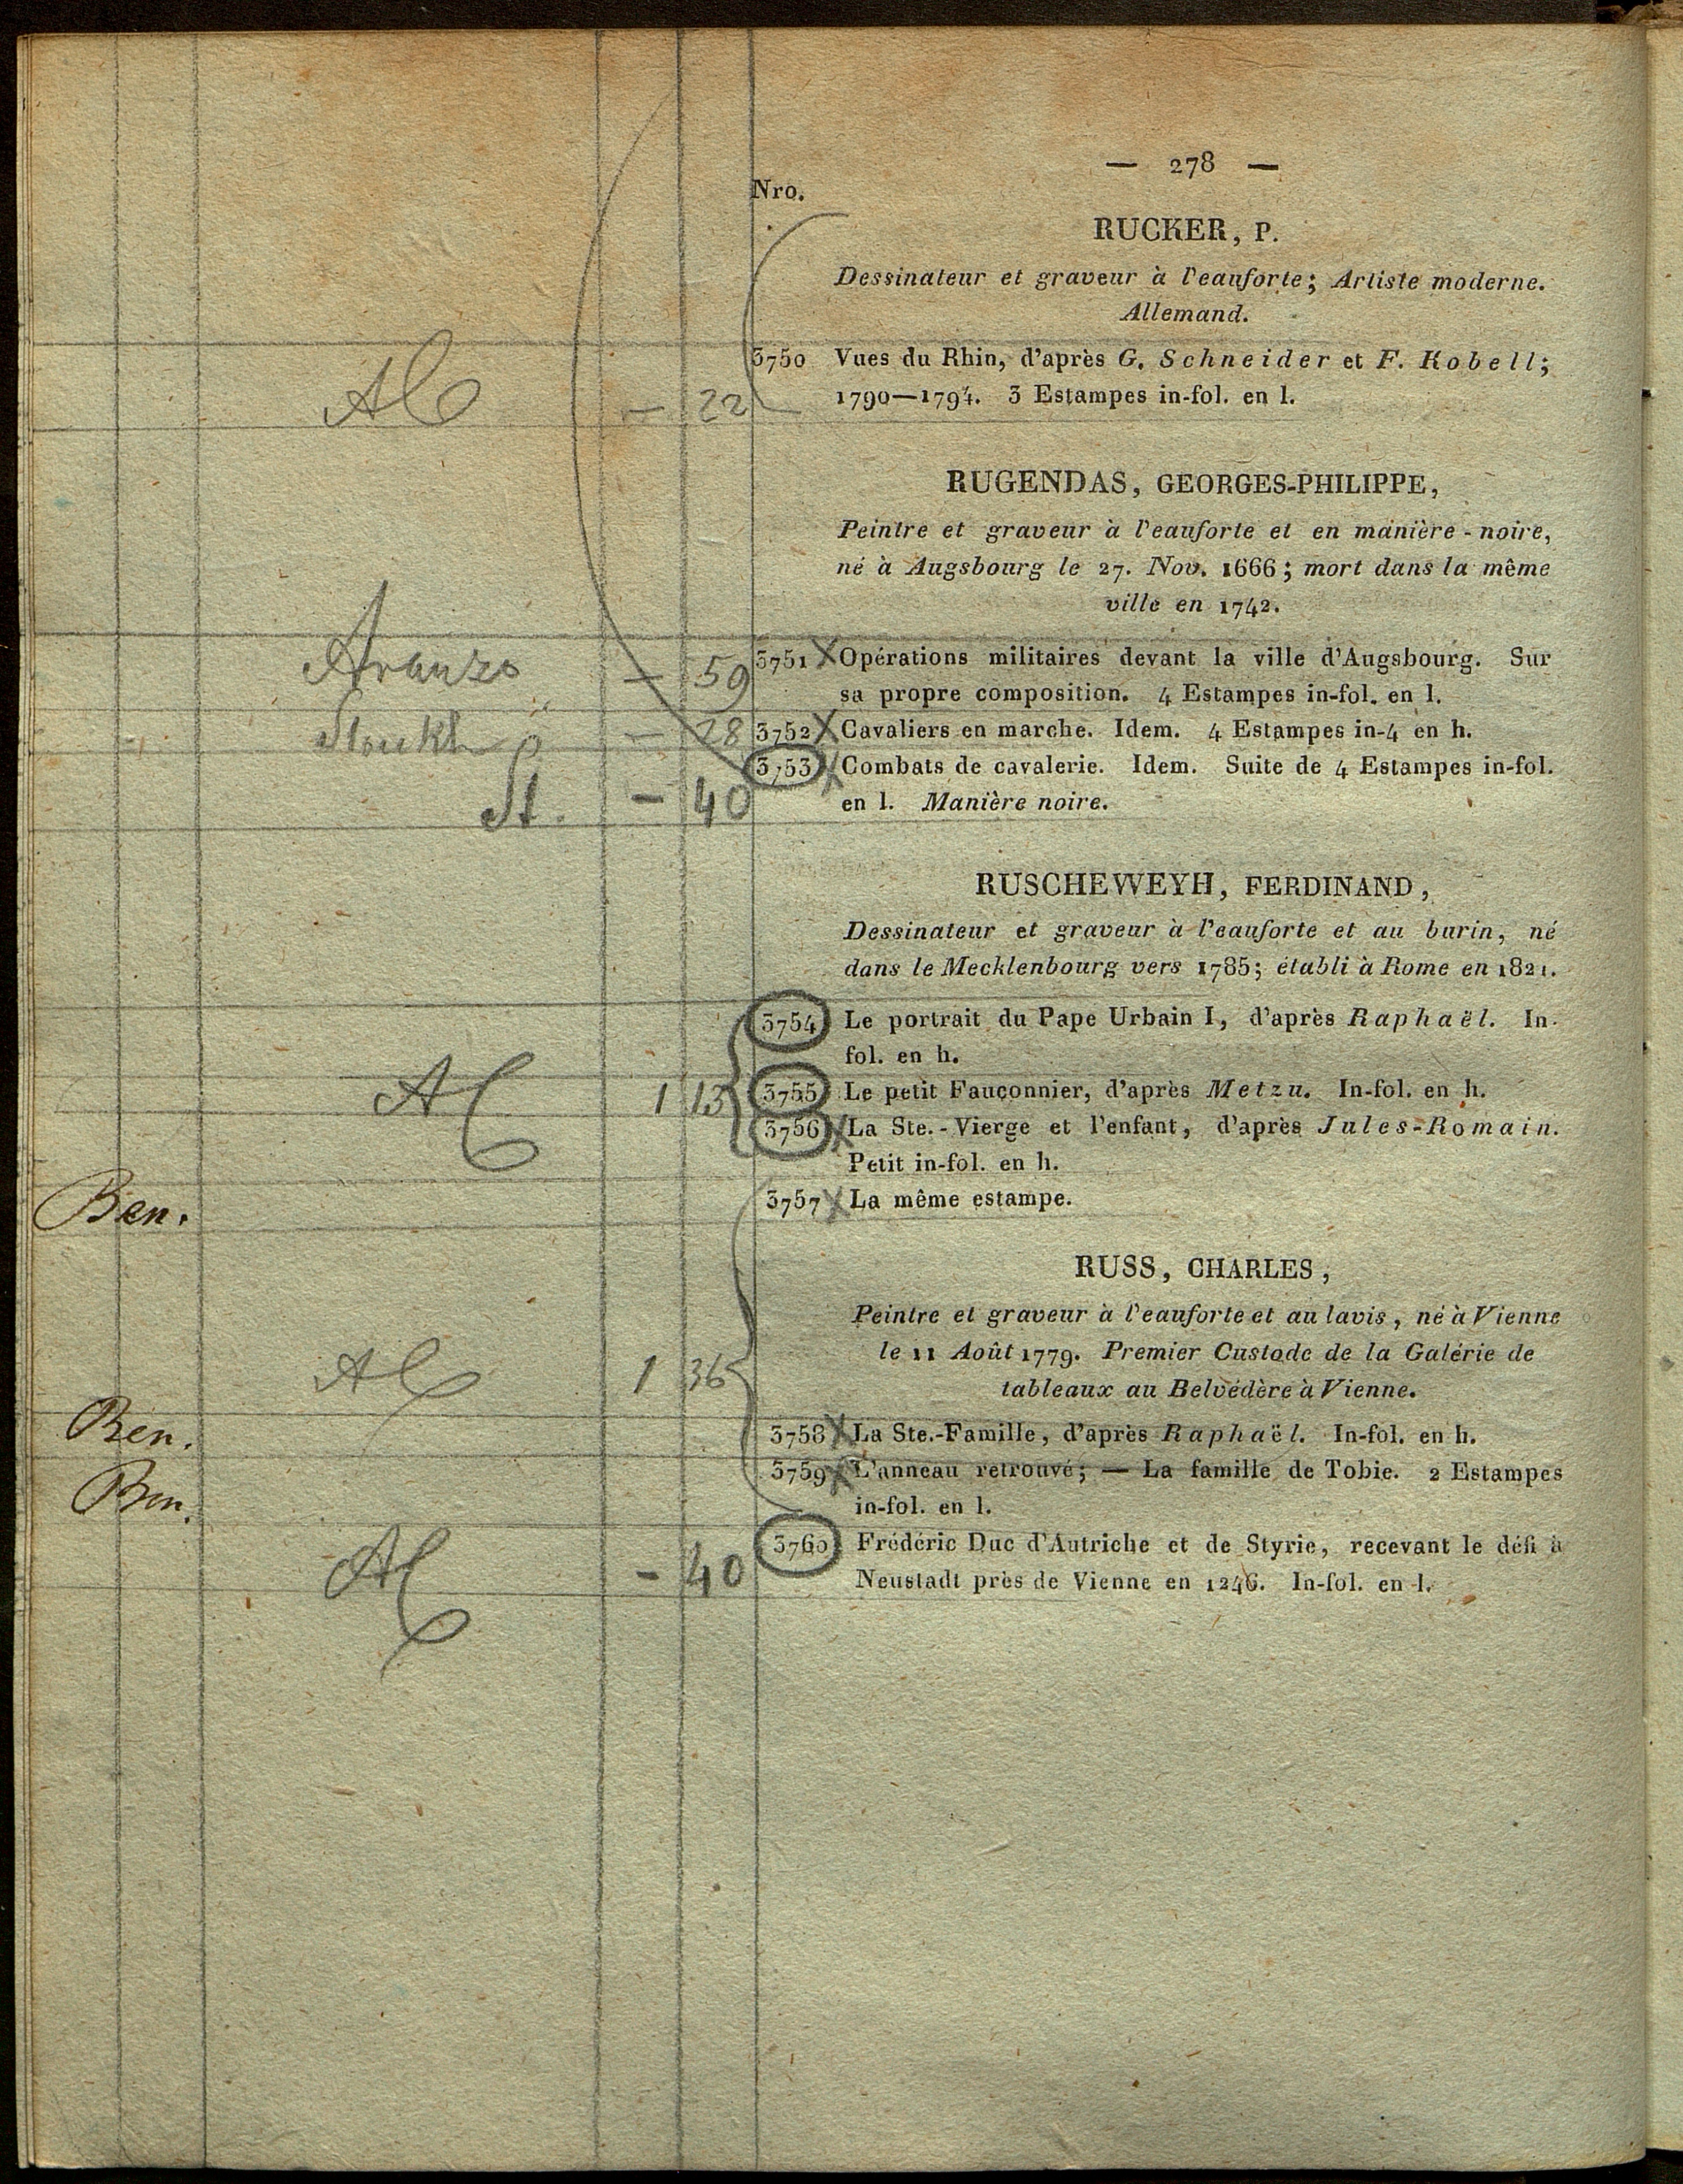 — 278 —
Nro.
RUCKER, P.
Dessinateur et graveur à l'eauforte; Artiste moderne.
Allemand.
3750 Vues du Rhin, d'après G. Schneider et F. Kobell;
— 22 1790—1794. 3 Estampes in-fol. en l.
RUGENDAS, GEORGES-PHILIPPE,
Peintre et graveur à l'eauforte et en manière-noire,
né à Augsbourg le 27. Nov. 1666; mort dans la même
ville en 1742.
— 59 3751 X Opérations militaires devant la ville d'Augsbourg. Sur
sa propre composition. 4 Estampes in-fol. en l.
— 28 3752 X Cavaliers en marche. Idem. 4 Estampes in-4 en h.
3753 X Combats de cavalerie. Idem. Suite de 4 Estampes in-fol.
St. — 40 en l. Manière noire.
RUSCHEWEYH, FERDINAND,
Dessinateur et graveur à l'eauforte et au burin, né
dans le Mecklenbourg vers 1785; établi à Rome en 1821.
3754 Le portrait du Pape Urbain I, d'après Raphaël. In-
fol. en h.
1 13 3755 Le petit Fauçonnier, d'après Metzu. In-fol. en h.
3756 X La Ste.-Vierge et l'enfant, d'après Jules-Romain.
Petit in-fol. en h.
Ben. 3757 X La même estampe.
RUSS, CHARLES,
Peintre et graveur à l'eauforte et au lavis, né à Vienne
le 11 Août 1779. Premier Custode de la Galérie de
1 36 tableaux au Belvédère à Vienne.
Ben. 3758 X La Ste.-Famille, d'après Raphaël. In-fol. en h.
Ben. 3759 X L'anneau retrouvé; — La famille de Tobie. 2 Estampes
in-fol. en l.
3760 Frédéric Duc d'Autriche et de Styrie, recevant le défi à
— 40 Neustadt près de Vienne en 1246. In-fol. en l.